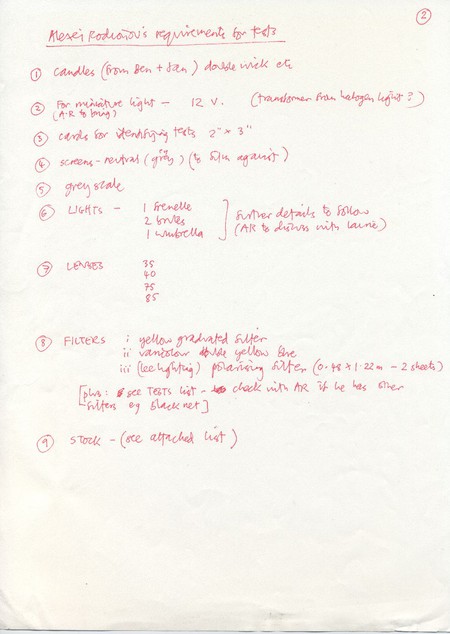 ②
Alexei Rodionov's requirements for tests
① candles (from Ben + Jan) double wick etc
② For miniature light - 12 V. (transformer from halogen light?)
(A.R to bring)
③ cards for identifying tests 2" × 3"
④ screens - neutral (grey) (to film against)
⑤ grey scale
⑥ LIGHTS - 1 frenelle
2 brutes
1 umbrella
further details to follow
(AR to discuss with Laurie)
⑦ LENSES 35
40
75
85
⑧ FILTERS i yellow graduated filter
ii varicolour double yellow blue
iii (lee lighting) polarising filter (0.48 × 1.22m - 2 sheets)
[plus: see TESTS list - check with AR if he has other
filters eg black net]
⑨ STOCK - (see attached list)